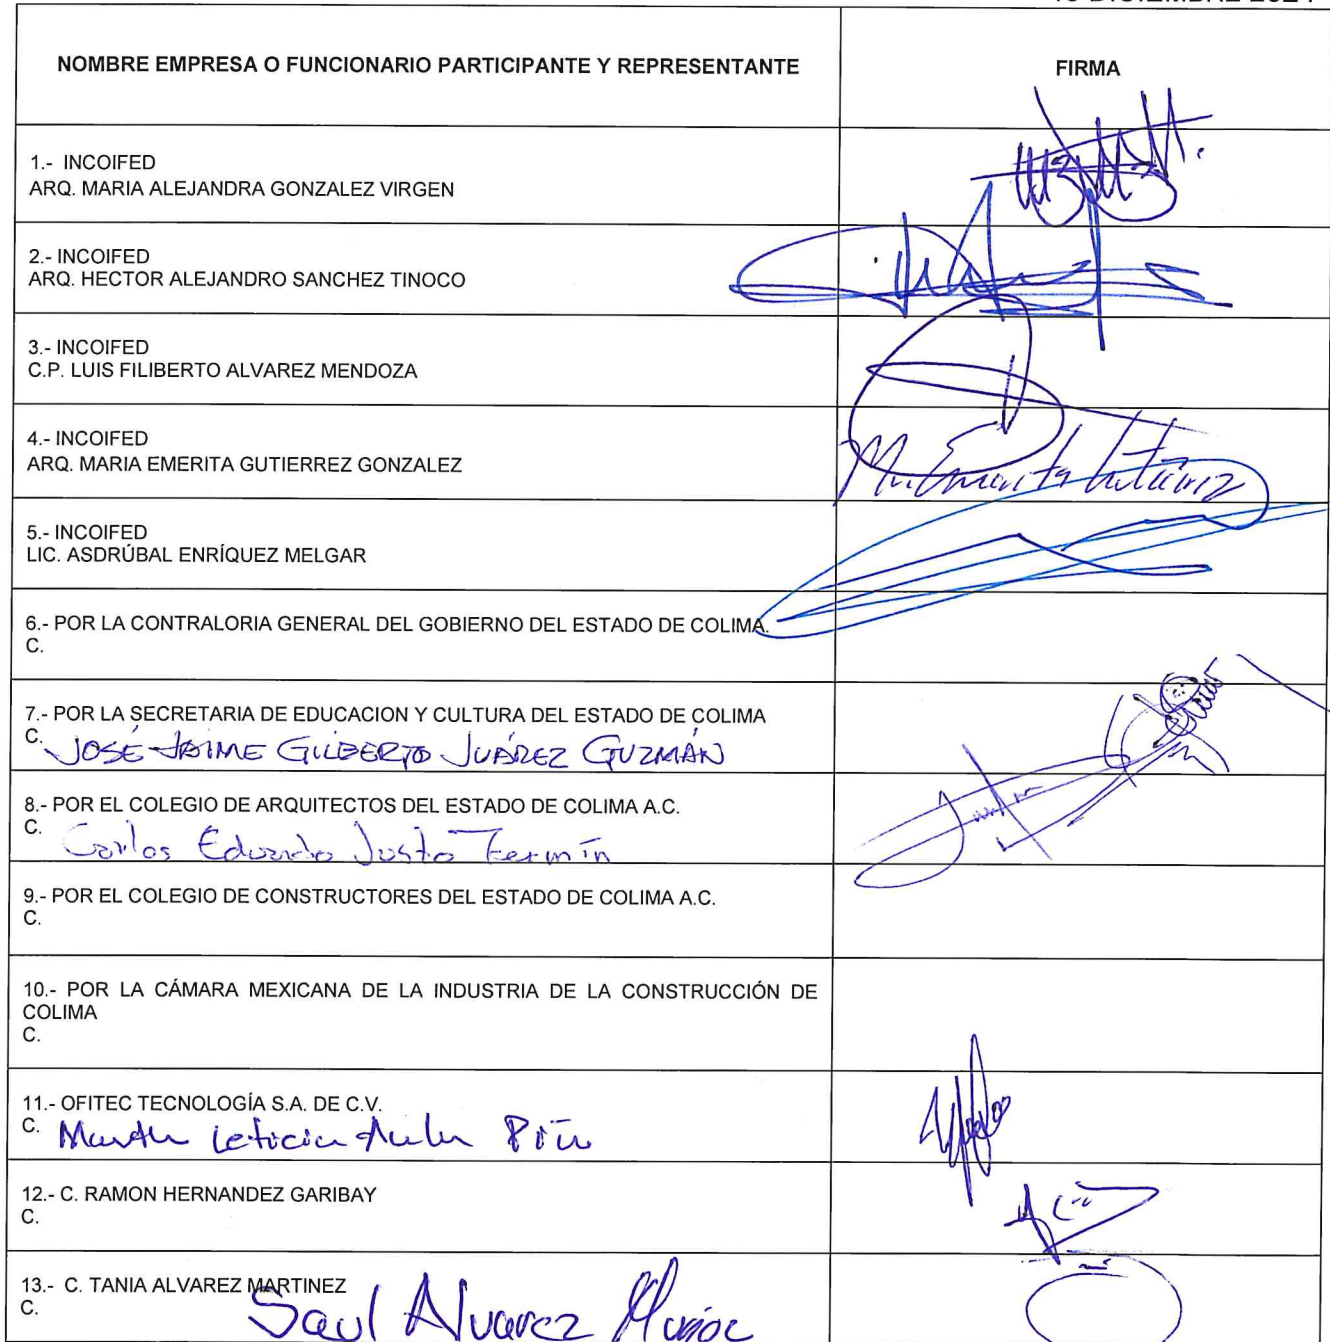 NOMBRE EMPRESA O FUNCIONARIO PARTICIPANTE Y REPRESENTANTE
FIRMA
1.- INCOIFED
ARQ. MARIA ALEJANDRA GONZALEZ VIRGEN
2.- INCOIFED
ARQ. HECTOR ALEJANDRO SANCHEZ TINOCO
3.- INCOIFED
C.P. LUIS FILIBERTO ALVAREZ MENDOZA
4.- INCOIFED
ARQ. MARIA EMERITA GUTIERREZ GONZALEZ
Ma. Emerita Gutiérrez
5.- INCOIFED
LIC. ASDRÚBAL ENRÍQUEZ MELGAR
6.- POR LA CONTRALORIA GENERAL DEL GOBIERNO DEL ESTADO DE COLIMA.
C.
7.- POR LA SECRETARIA DE EDUCACION Y CULTURA DEL ESTADO DE COLIMA
C. JOSÉ JAIME GILBERTO JUÁREZ GUZMÁN
8.- POR EL COLEGIO DE ARQUITECTOS DEL ESTADO DE COLIMA A.C.
C. Carlos Eduardo Justo Fermín
9.- POR EL COLEGIO DE CONSTRUCTORES DEL ESTADO DE COLIMA A.C.
C.
10.- POR LA CÁMARA MEXICANA DE LA INDUSTRIA DE LA CONSTRUCCIÓN DE
COLIMA
C.
11.- OFITEC TECNOLOGÍA S.A. DE C.V.
C. Martha Leticia
12.- C. RAMON HERNANDEZ GARIBAY
C.
13.- C. TANIA ALVAREZ MARTINEZ
C. Saul Alvarez Muñoz